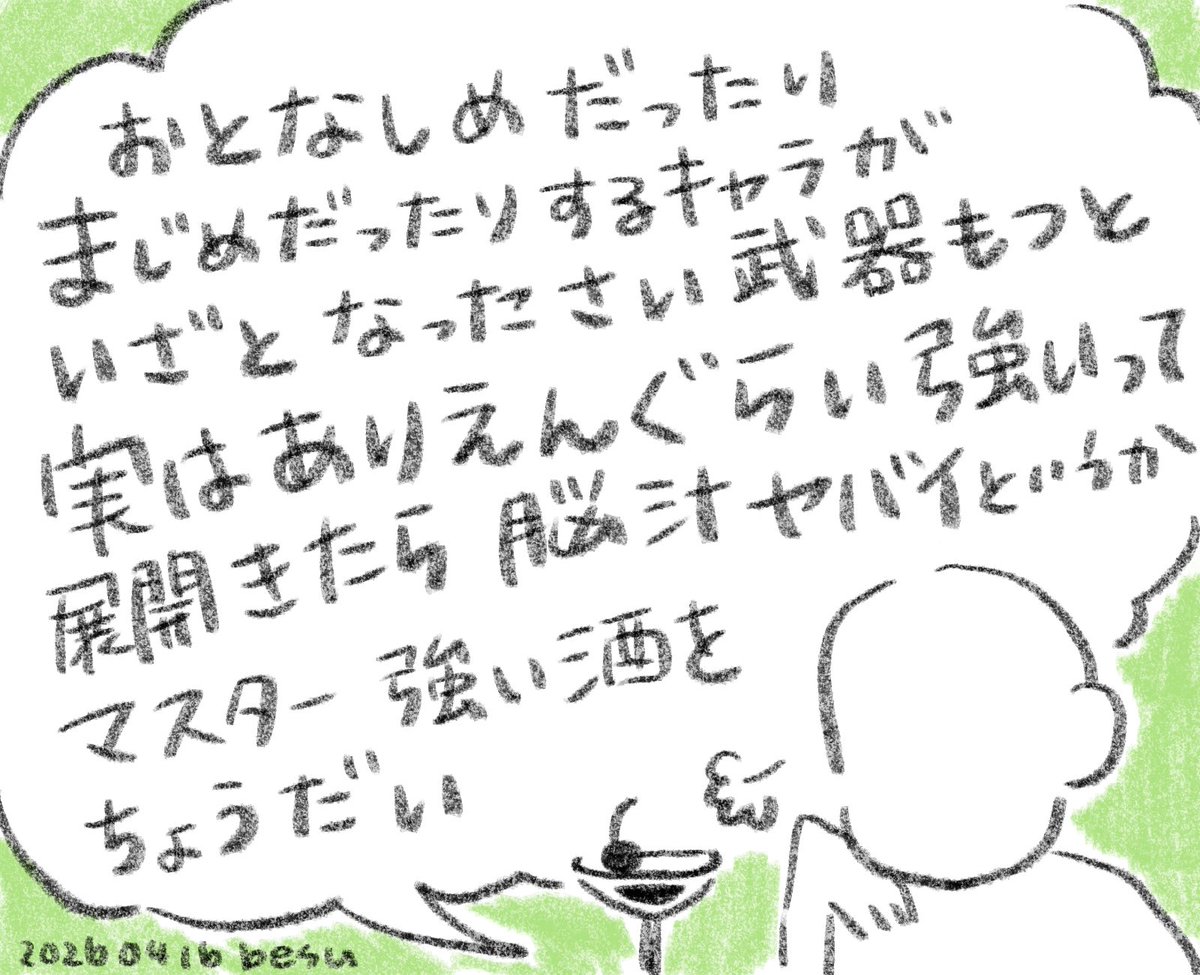 おとなしめだったり
まじめだったりするキャラが
いざとなったさい武器もつと
実はありえんぐらい強いって
展開きたら脳汁ヤバイどうか
マスター強い酒を
ちょうだい
20260416 besu